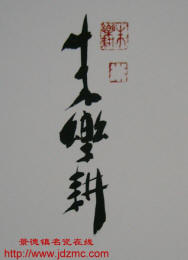 朱樂耕
景德镇名瓷在线
http://www.jdzmc.com